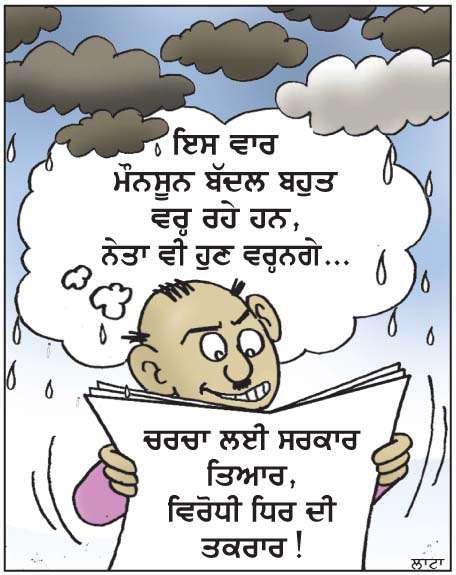 ਇਸ ਵਾਰ
ਮੌਨਸੂਨ ਬੱਦਲ ਬਹੁਤ
ਵਰ੍ਹ ਰਹੇ ਹਨ,
ਨੇਤਾ ਵੀ ਹੁਣ ਵਰ੍ਹਨਗੇ...
ਚਰਚਾ ਲਈ ਸਰਕਾਰ
ਤਿਆਰ,
ਵਿਰੋਧੀ ਧਿਰ ਦੀ
ਤਕਰਾਰ!
ਲਾਟਾ